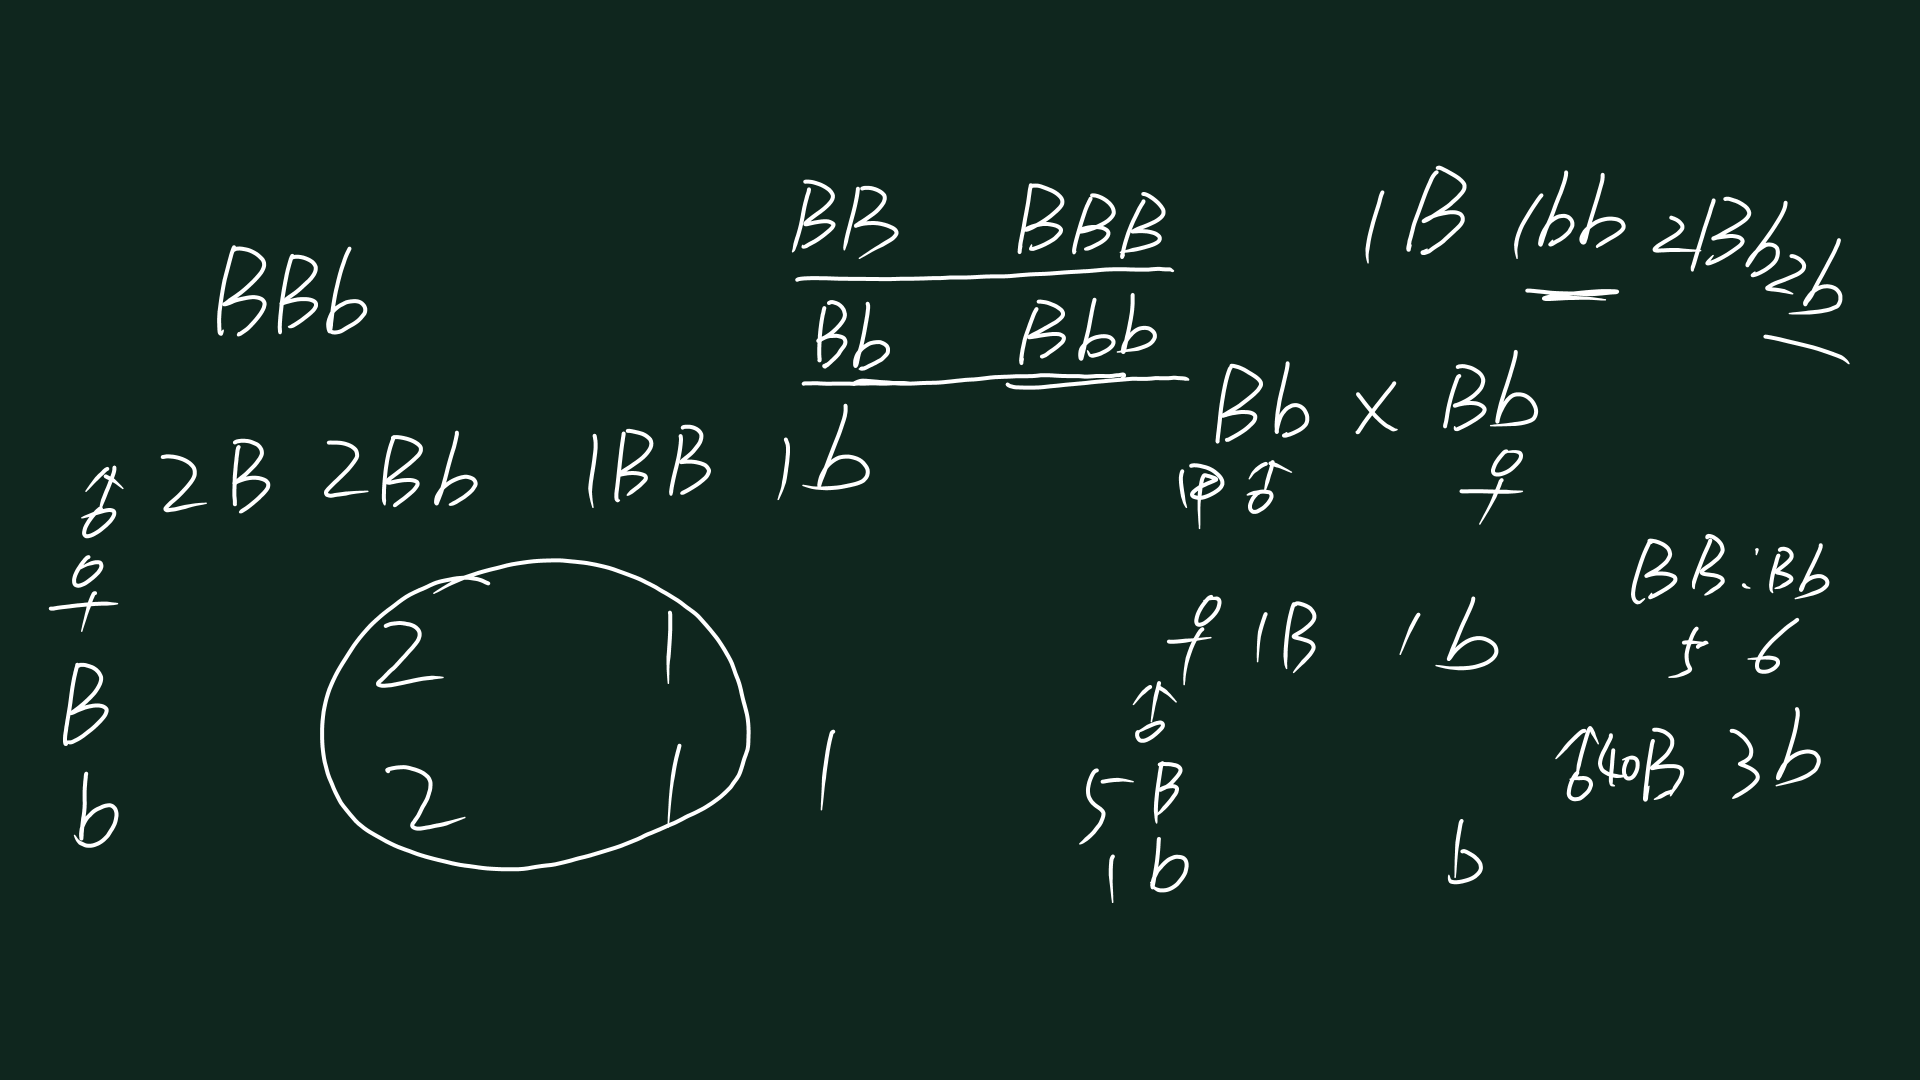 BBb
BB BBB
Bb Bbb
1B 1bb 2Bb 2b
♂ 2B 2Bb 1BB 1b
♀
B 2 1
b 2 1 1
Bb × Bb
甲♂ ♀
♀ 1B 1b
♂
5B
1b b
BB:Bb
5 6
♂ 40B 3b